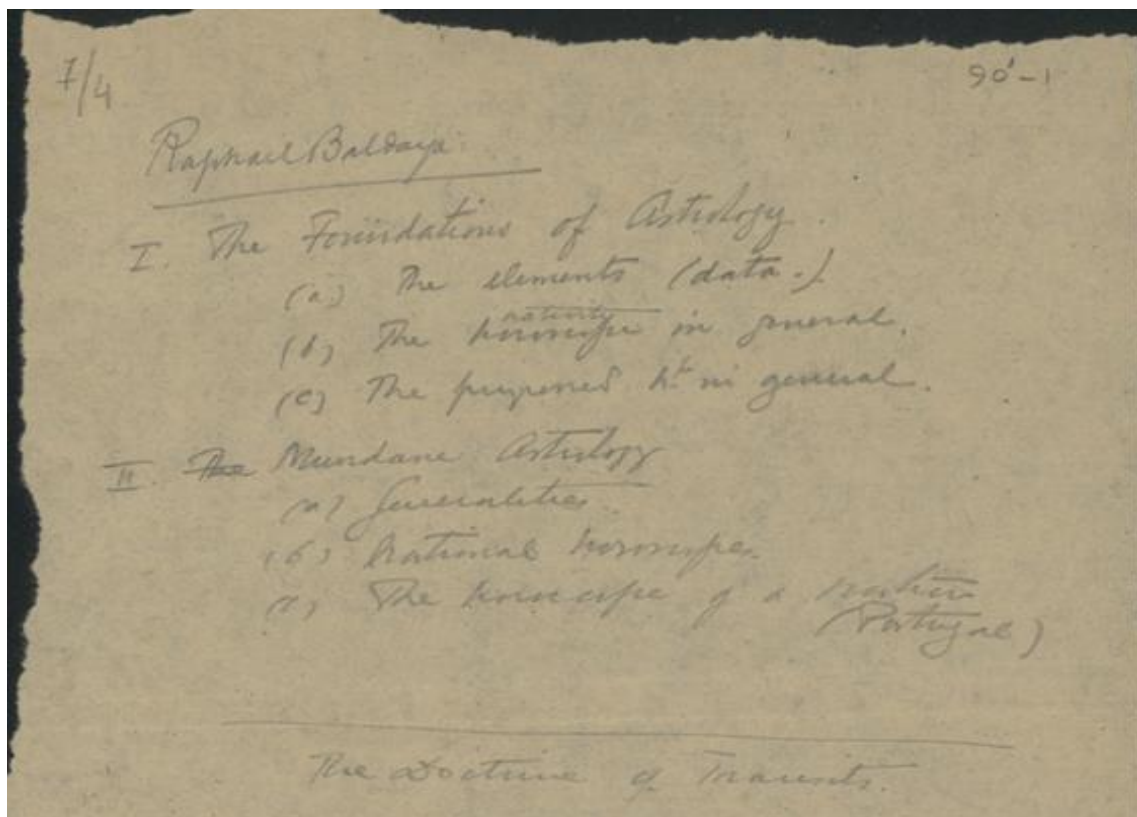 7/4
90'-1
Raphael Baldaya.
I. The Foundations of Astrology.
(a) The elements (data.)
nativity
(b) The horoscope in general.
(c) The progressed h. in general.
II. The Mundane Astrology
(a) Generalities.
(b) National horoscopes.
(c) The horoscope of a nation
(Portugal)
The Doctrine of Transits.